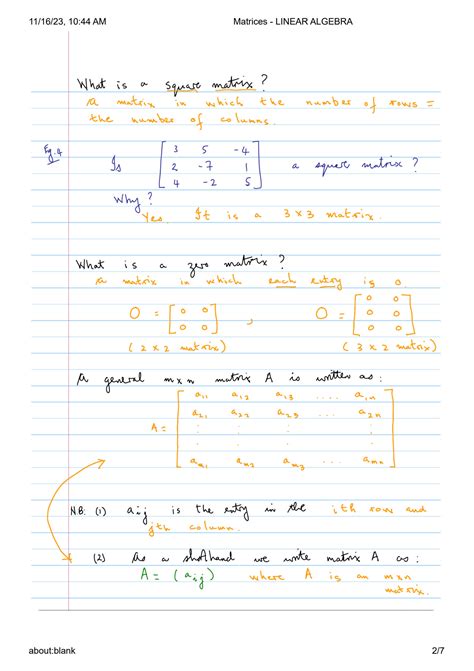 11/16/23, 10:44 AM Matrices - LINEAR ALGEBRA
What is a square matrix?
A matrix in which the number of rows =
the number of columns.
Eg.4
Is [ 3 5 -4 ; 2 -7 1 ; 4 -2 5 ] a square matrix ?
Why?
Yes. It is a 3 x 3 matrix.
What is a zero matrix ?
A matrix in which each entry is 0
O = [ 0 0 ; 0 0 ] , O = [ 0 0 ; 0 0 ; 0 0 ]
( 2 x 2 matrix) ( 3 x 2 matrix)
A general m x n matrix A is written as :
a11 a12 a13 .... a1n
a21 a22 a23 .... a2n
A =
am1 am2 am3 .... amn
N.B: (1) aij is the entry in the ith row and
jth column.
(2) As a shorthand we write matrix A as :
A = (aij) where A is an mxn
matrix.
about:blank 2/7